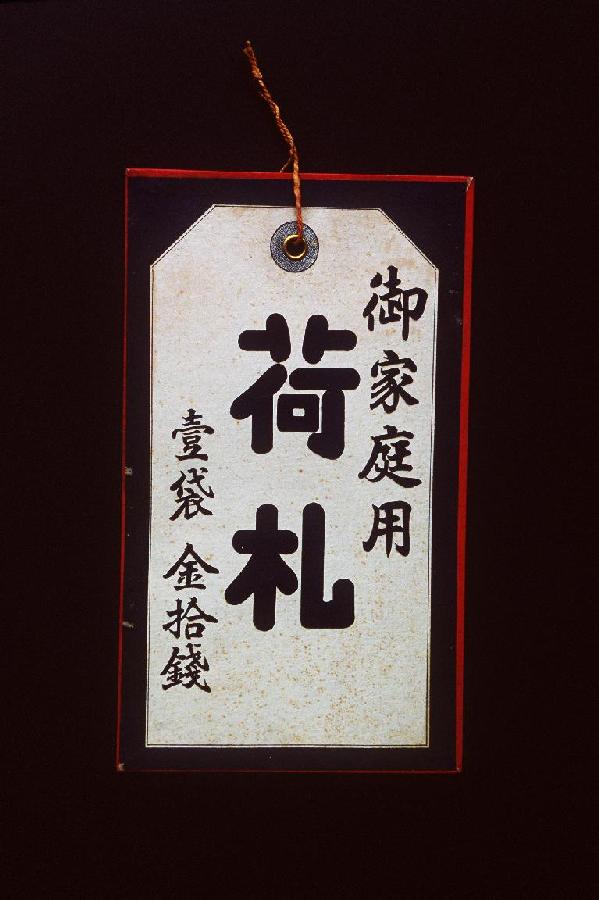 御家庭用
荷札
壹袋 金拾錢